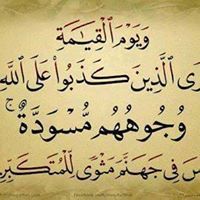 وَيَوْمَ الْقِيَامَةِ
رَى الَّذِينَ كَذَبُوا عَلَى اللَّهِ
وُجُوهُهُم مُّسْوَدَّةٌ ۚ
سَ فِي جَهَنَّمَ مَثْوًى لِّلْمُتَكَبِّرِ